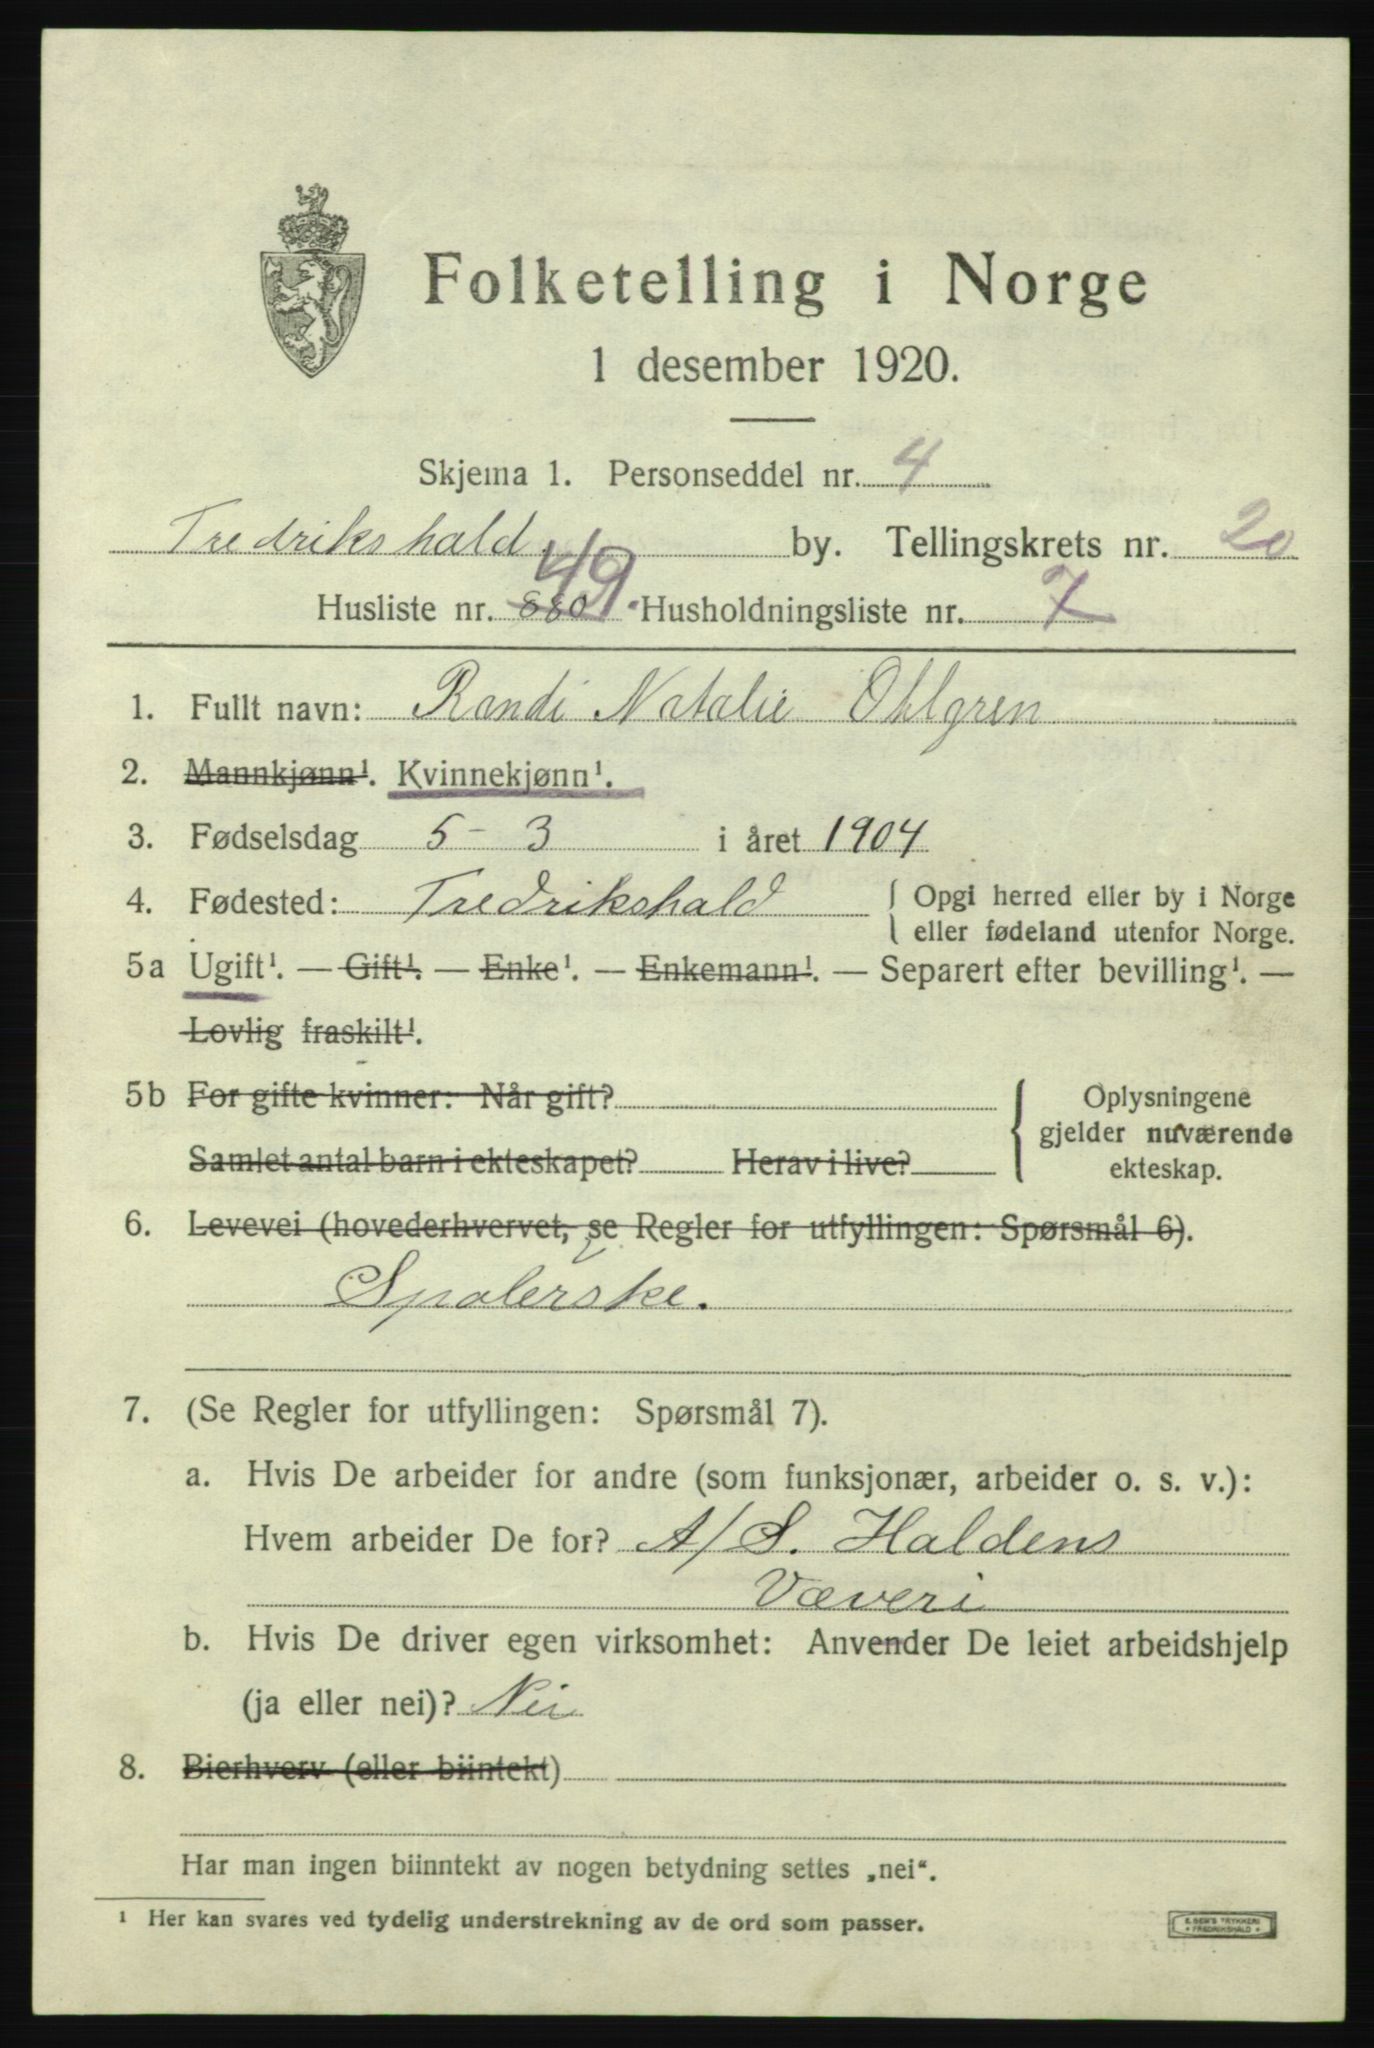 Folketelling i Norge
1 desember 1920.
Skjema 1. Personseddel nr. 4
Fredrikshald by. Tellingskrets nr. 20
Husliste nr. 880 49. Husholdningsliste nr. 7
1. Fullt navn: Randi Natalie Ohlgren
2. Mannkjønn¹. Kvinnekjønn¹.
3. Fødselsdag 5 - 3 i året 1904
4. Fødested: Fredrikshald { Opgi herred eller by i Norge
eller fødeland utenfor Norge.
5a Ugift¹. — Gift¹. — Enke¹. — Enkemann¹. — Separert efter bevilling¹. —
Lovlig fraskilt¹.
5b For gifte kvinner: Når gift? { Oplysningene
gjelder nuværende
Samlet antal barn i ekteskapet? Herav i live?
ekteskap.
6. Levevei (hovederhvervet, se Regler for utfyllingen: Spørsmål 6).
Spolerske.
7. (Se Regler for utfyllingen: Spørsmål 7).
a. Hvis De arbeider for andre (som funksjonær, arbeider o. s. v.):
Hvem arbeider De for? A/S. Haldens
Væveri
b. Hvis De driver egen virksomhet: Anvender De leiet arbeidshjelp
(ja eller nei)? Nei
8. Bierhverv (eller biintekt)
Har man ingen biinntekt av nogen betydning settes „nei“.
¹ Her kan svares ved tydelig understrekning av de ord som passer.
E. SEM'S TRYKKERI
• FREDRIKSHALD •